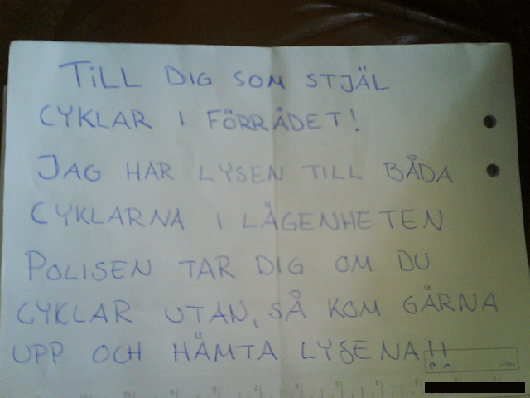 TILL DIG SOM STJÄL
CYKLAR I FÖRRÅDET!
JAG HAR LYSEN TILL BÅDA
CYKLARNA I LÄGENHETEN.
POLISEN TAR DIG OM DU
CYKLAR UTAN, SÅ KOM GÄRNA
UPP OCH HÄMTA LYSENA!!